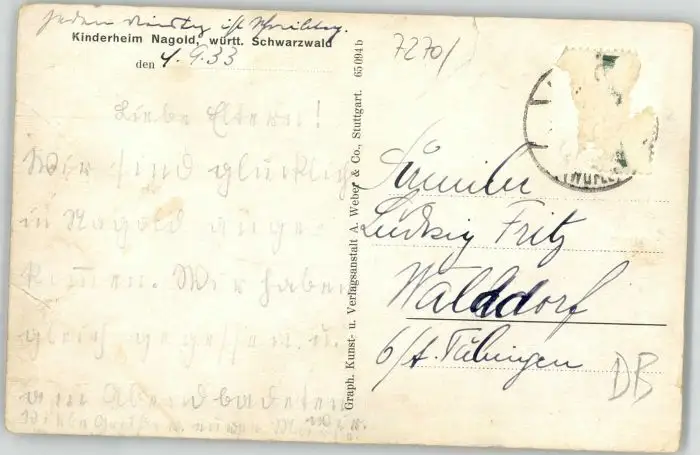 jeden Dienstag ist Schreibtag.
Kinderheim Nagold, württ. Schwarzwald
den 4.9.33
Liebe Eltern!
Wir sind glücklich
in Nagold ange-
kommen. Wir haben
gleich gegessen u.
am Abend badeten
wir.
Graph. Kunst- u. Verlagsanstalt A. Weber & Co., Stuttgart. 65094b
7270/
Familie
Ludwig Fritz
Walddorf
b/A. Tübingen
DB